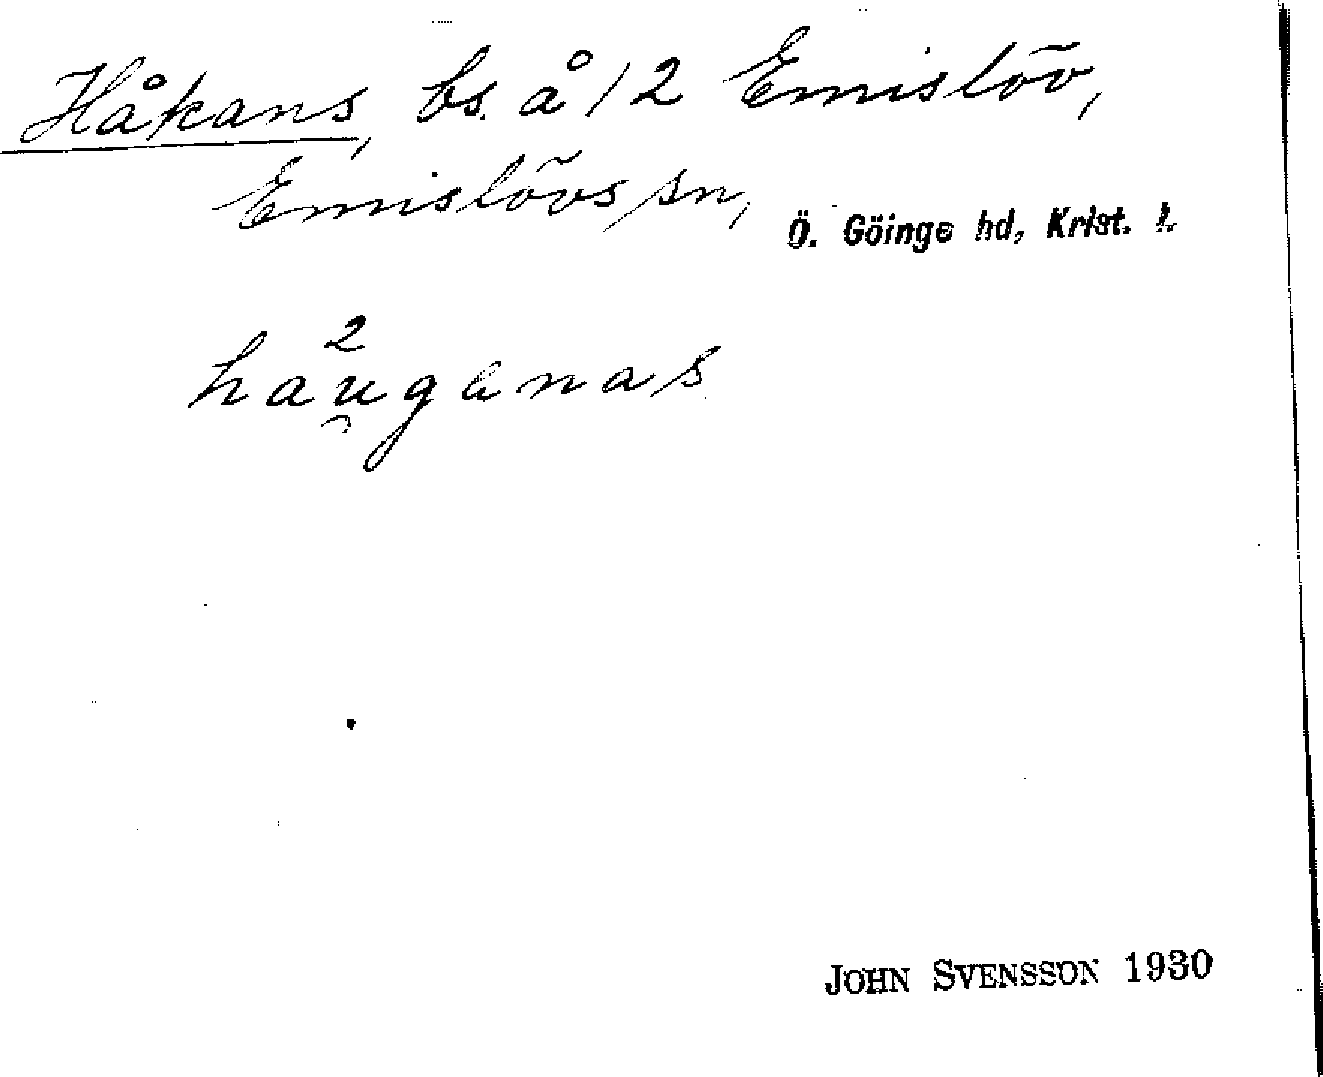 Håkans, bs. å 12 Emislöv,
Emislövs sn, Ö. Göinge hd, Krist. l.
hau̯²ganas
JOHN SVENSSON 1930